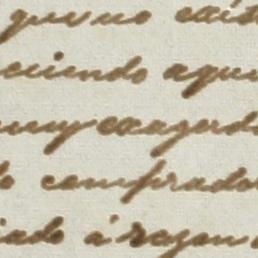 que no exis
ciendo aque
muy exagerd
do comprador
iado á razon